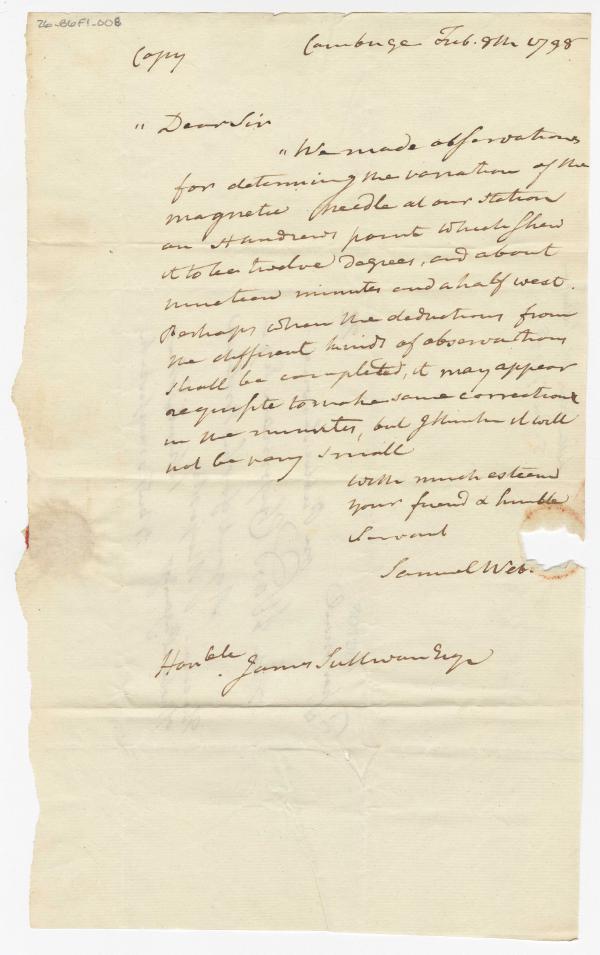 76-B6F1-008
Copy
Cambrige Feb. 8th 1798
" Dear Sir
" We made observations
for determing the variation of the
magnetic Needle at our Station
on St Andrews point which Shew
it to be twelve Degrees, and about
nineteen minutes and a half west.
Perhaps when the deductions from
the different kinds of observations
shall be compleated, it may appear
requisite to make some corrections
in the minutes, but I think it will
not be very small
With much esteem
your friend & humble
Servant
Samuel Web
Honble James Sullivan Esqr